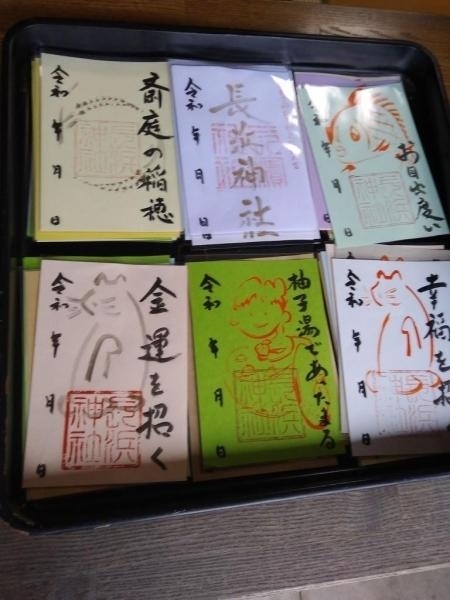 斎庭の稲穂
令和 年 月 日
長浜神社
長浜神社
令和 年 月 日
長浜神社
お目出度い
令和 年 月 日
長浜神社
金運を招く
令和 年 月 日
長浜神社
柚子湯であたたまる
令和 年 月 日
長浜神社
幸福を招
令和 年 月 日
長浜神社